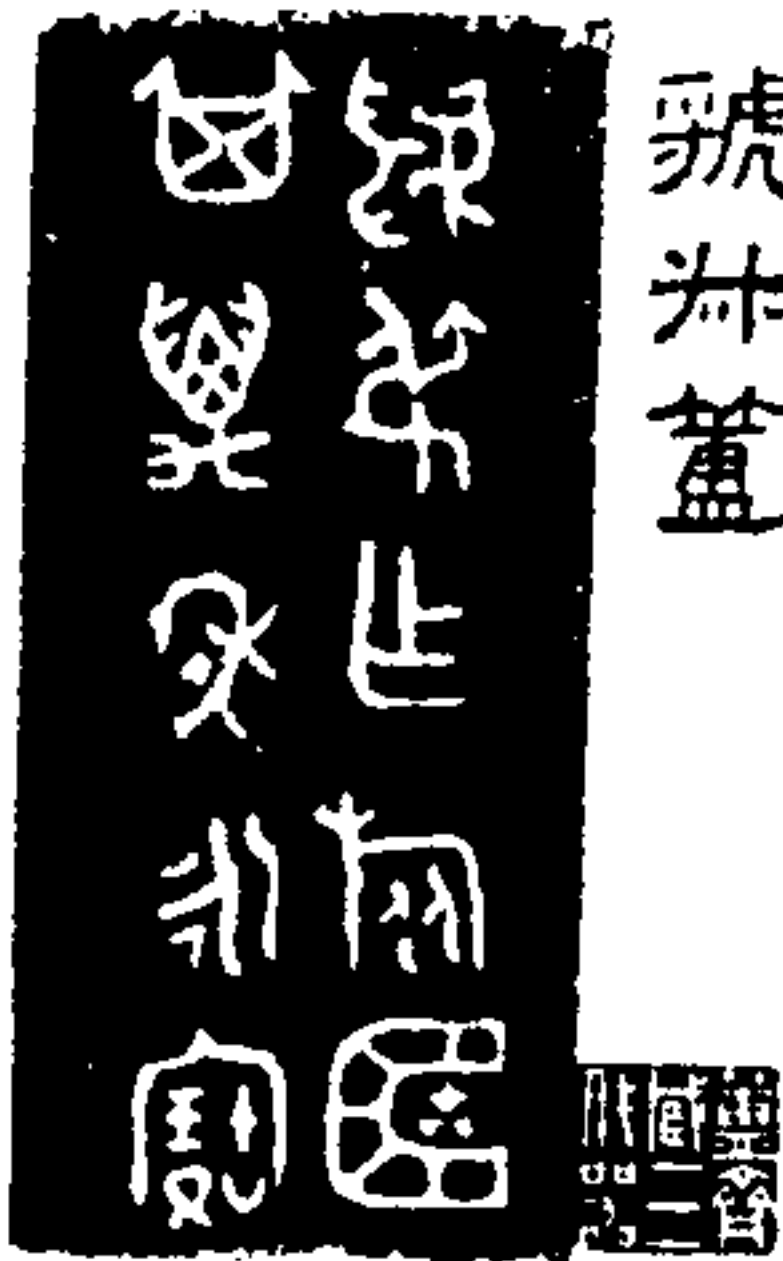 虢叔簠
虢叔乍旅
其萬年永寶